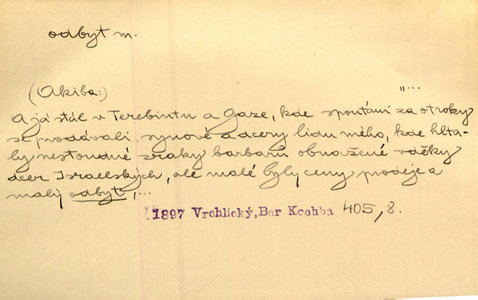 odbyt m.
(Akiba:) "...
A já stál v Terebintu a Gaze, kde spoutáni za otroky
se prodávali synové a dcery lidu mého, kde hlta-
ly nestoudné zraky barbarů obnažené vděky
dcer Israelských, ale malé byly ceny prodeje a
malý odbyt,...
1897 Vrchlický, Bar Kochba 405, 8.